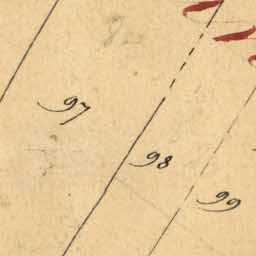 97
98
99